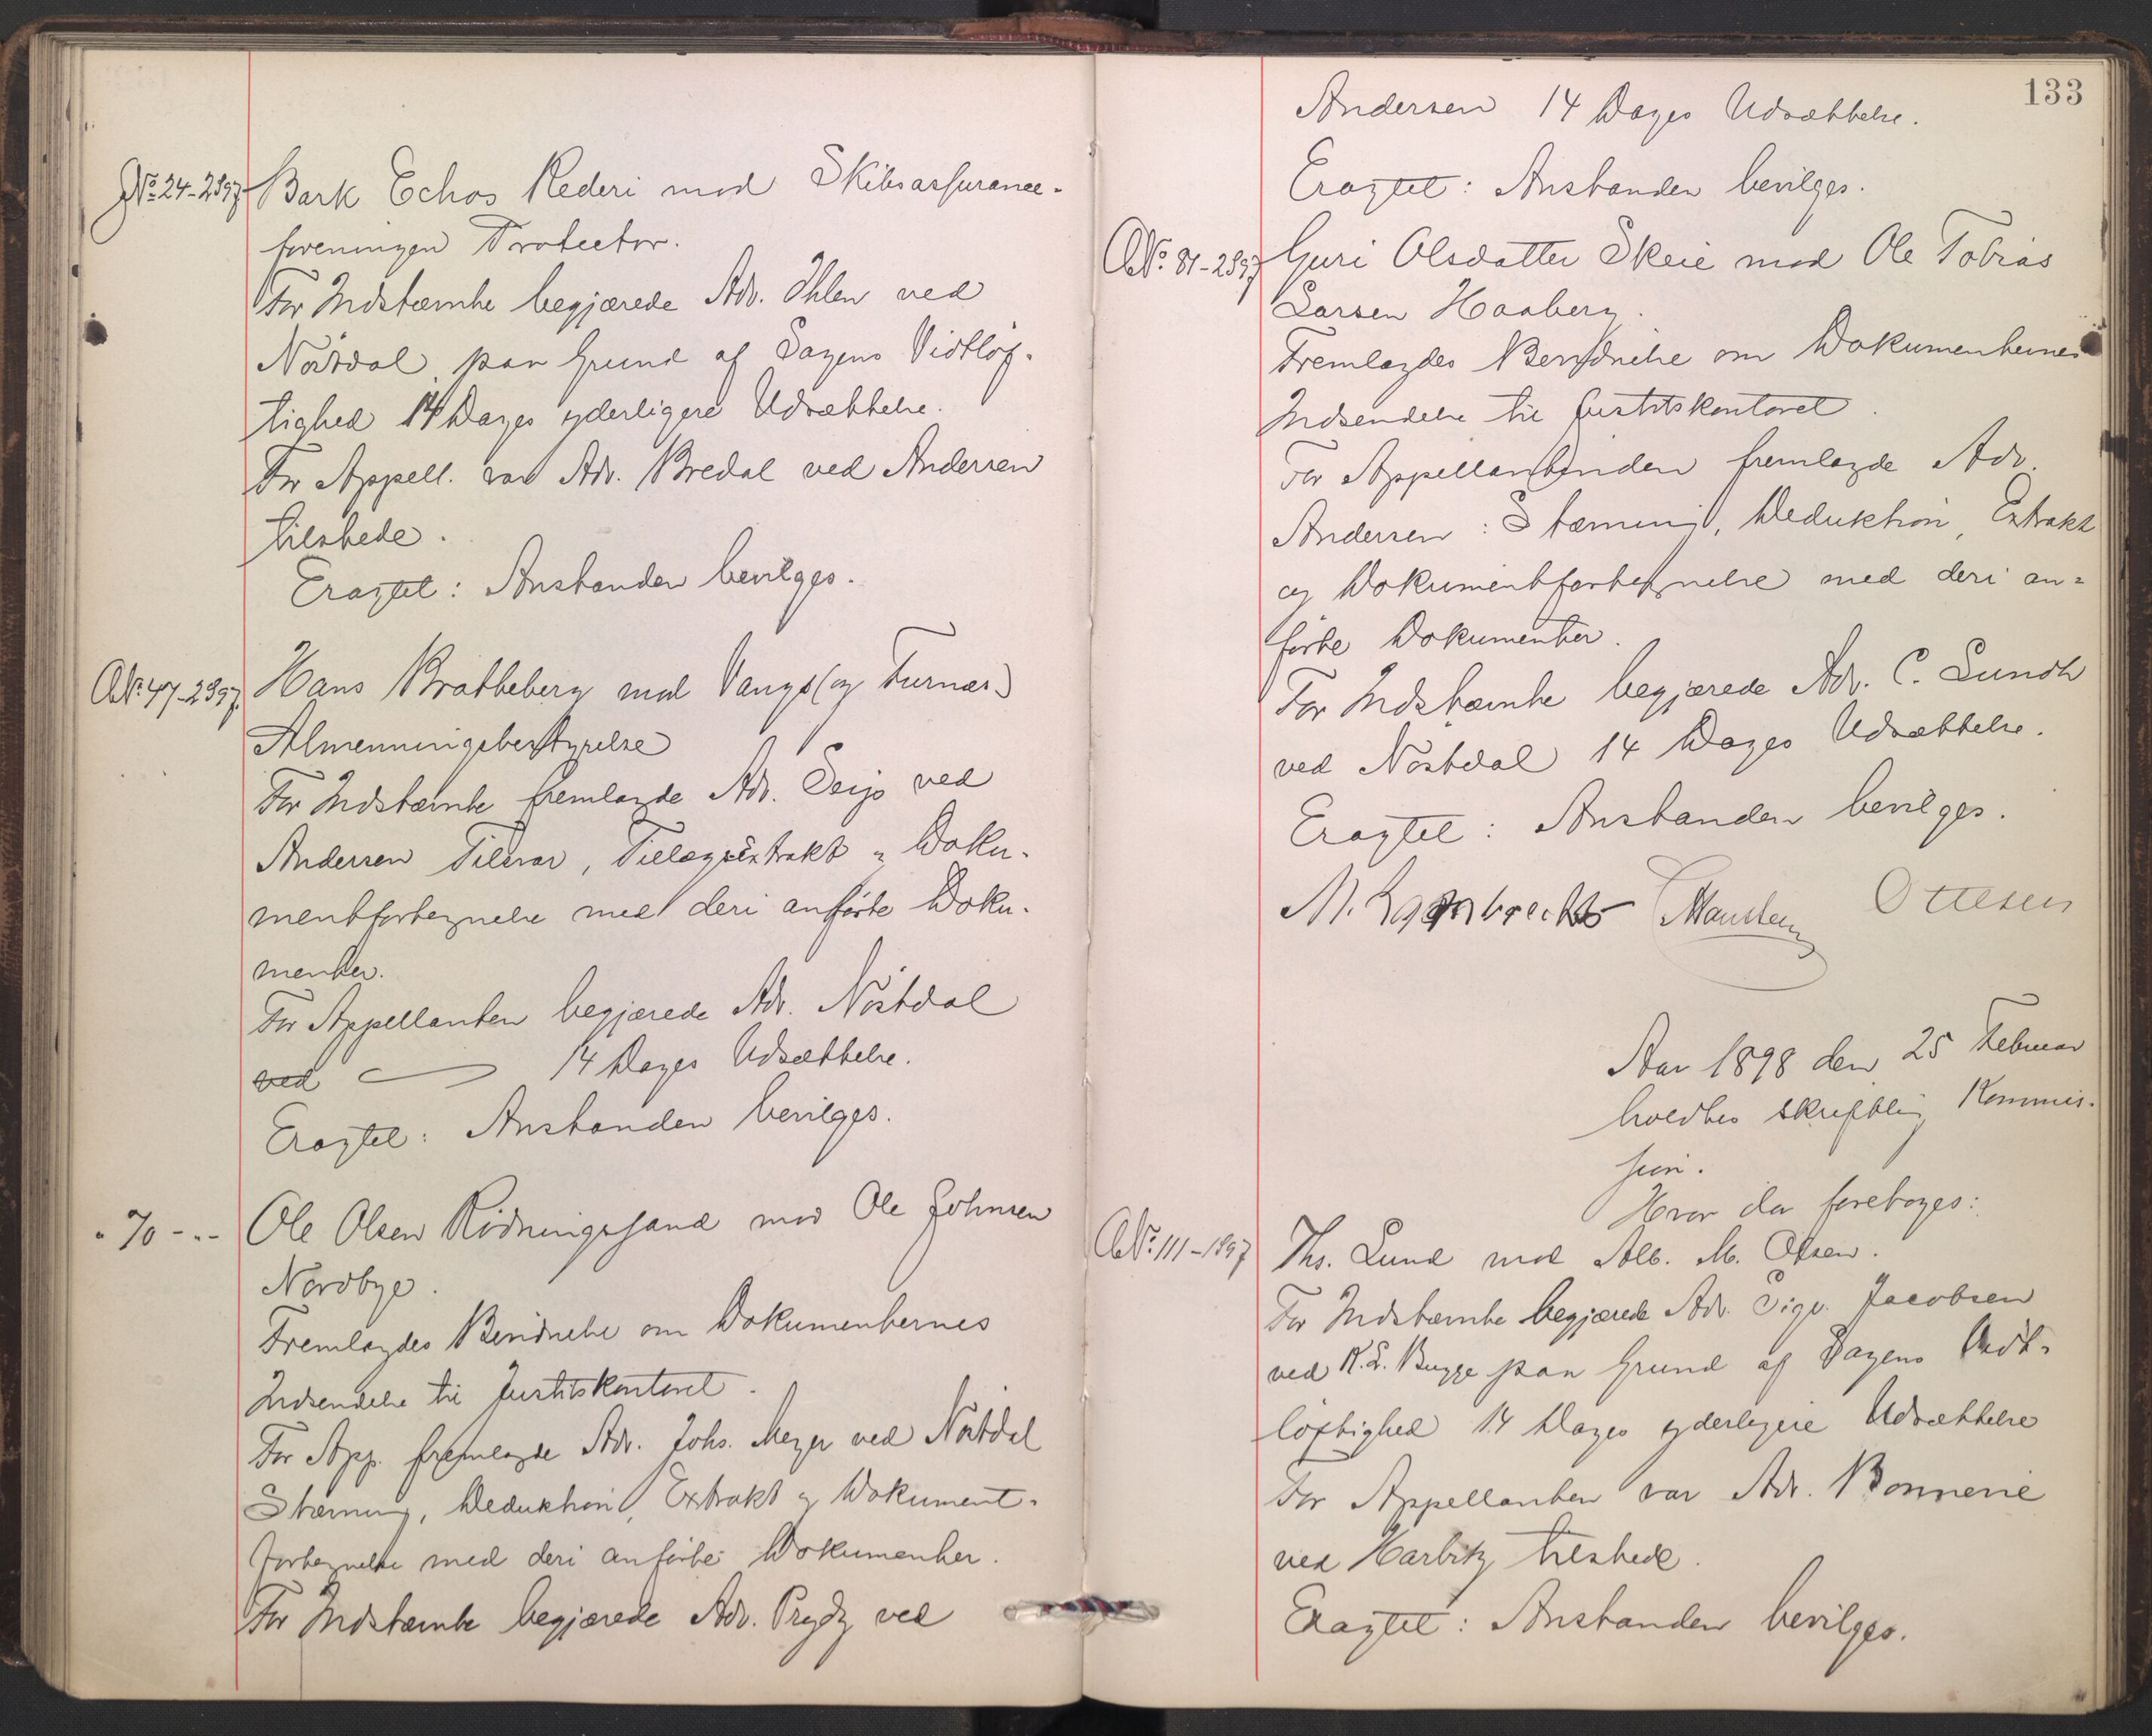 No. 24-2/97 Bark Echos Rederi mod Skibsassurance-
foreningen Protector.
For Indstævnte begjærede Adv. Ihlen ved
Nöstdal paa Grund af Sagens Vidtlöf-
tighed 14 Dages yderligere Udsættelse.
For Appell. var Adv. Bredal ved Andersen
tilstede.
Eragtet: Anstanden bevilges.
No. 47-2/97 Hans Bratteberg mod Vangs (og Furnæs)
Almenningsbestyrelse
For Indstævnte fremlagde Adv. Seip ved
Andersen Tilsvar, Tillægsextrakt og Doku-
mentfortegnelse med deri anförte Doku-
menter.
For Appellanten begjærede Adv. Nöstdal
ved 14 Dages Udsættelse.
Eragtet: Anstanden bevilges.
" 70 - " - Ole Olsen Rödningssand mod Ole Johnsen
Nordbye.
Fremlagdes Bevidnelse om Dokumenternes
Indsendelse til Justitskontoret.
For App. fremlagde Adv. Johs. Meyer ved Nöstdal
Stævning, Deduktion, Extrakt og Dokument-
fortegnelse med deri anförte Dokumenter.
For Indstævnte begjærede Adv. Prydz ved
133
Andersen 14 Dages Udsættelse.
Eragtet: Anstanden bevilges.
No. 81-2/97 Guri Olsdatter Skeie mod Ole Tobias
Larsen Haaberg.
Fremlagdes Bevidnelse om Dokumenternes
Indsendelse til Justitskontoret.
For Appellantinden fremlagde Adv.
Andersen: Stævning, Deduktion, Extrakt
og Dokumentfortegnelse med deri an-
förte Dokumenter.
For Indstævnte begjærede Adv. C. Lundh
ved Nöstdal 14 Dages Udsættelse.
Eragtet: Anstanden bevilges.
M. Lambrechts Ottesen
Aar 1898 den 25 Februar
holdtes skriftlig Kommis-
sion.
Hvor da foretoges:
No. 111-1897 Ths. Lund mod Alb. M. Olsen.
For Indstævnte begjærede Adv. Sigv. Jacobsen
ved K. L. Bugge paa Grund af Sagens Vidt-
löftighed 14 Dages yderligere Udsættelse
For Appellanten var Adv. Bonnevie
ved Harbitz tilstede.
Eragtet: Anstanden bevilges.